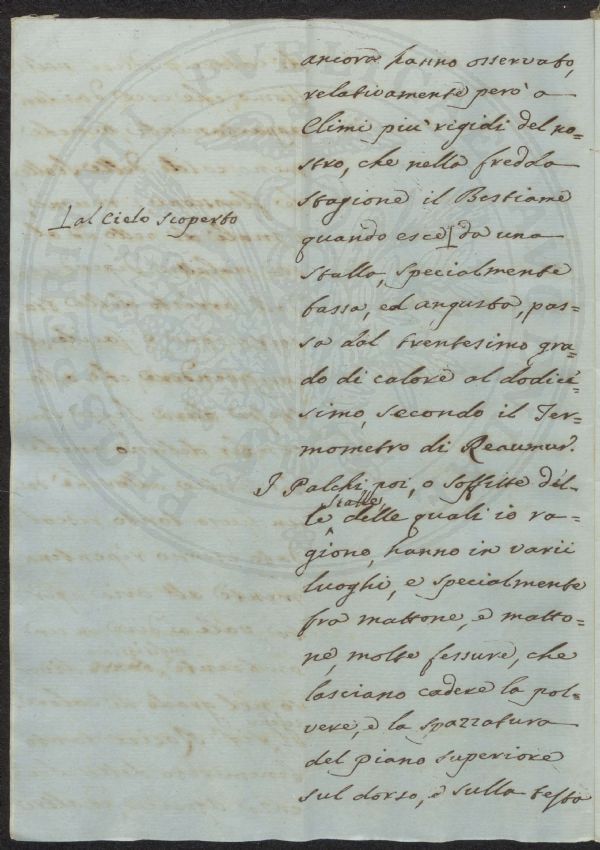 ancora hanno osservato,
relativamente però a
Climi più rigidi del no-
stro, che nella fredda
stagione il Bestiame
al Cielo scoperto
quando esce da una
stalla, specialmente
bassa, ed angusta, pas-
sa dal trentesimo gra-
do di calore al dodice-
simo, secondo il Ter-
mometro di Reaumur.
I Palchi poi, o soffitte del-
stalle,
le delle quali io ra-
giono, hanno in varii
luoghi, e specialmente
fra mattone, e matto-
ne, molte fessure, che
lasciano cadere la pol-
vere, e la spazzatura
del piano superiore
sul dorso, e sulla testa